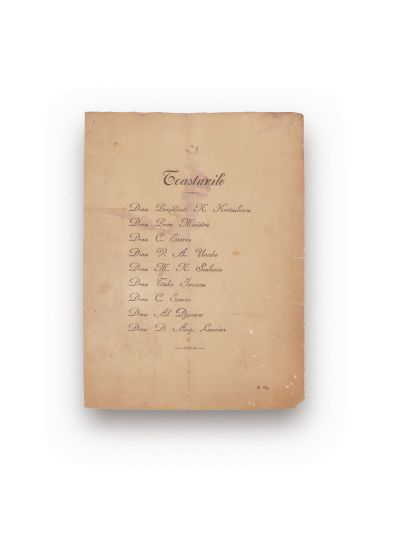 Toasturile
Dnu Președinte N. Kretzulescu
Dnu Prim Ministru
Dnu C. Esarcu
Dnu V. A. Ureche
Dnu M. K.
Dnu Take Ionescu
Dnu C. Esarcu
Dnu Al Djuvara
Dnu D. Aug. Laurian